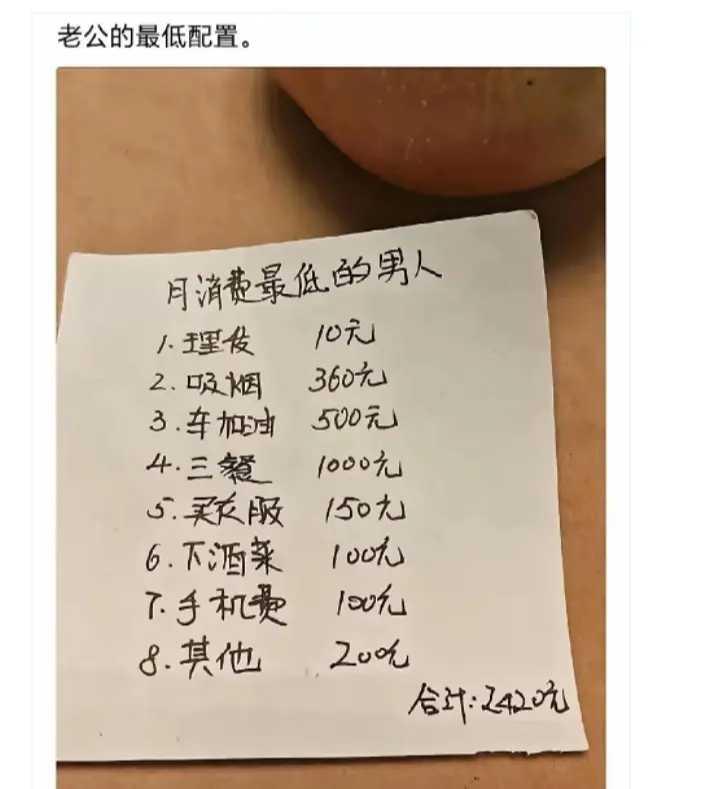 老公的最低配置。
月消费最低的男人
1.理发 10元
2.吸烟 360元
3.车加油 500元
4.三餐 1000元
5.买衣服 150元
6.下酒菜 100元
7.手机费 100元
8.其他 200元
合计:2420元